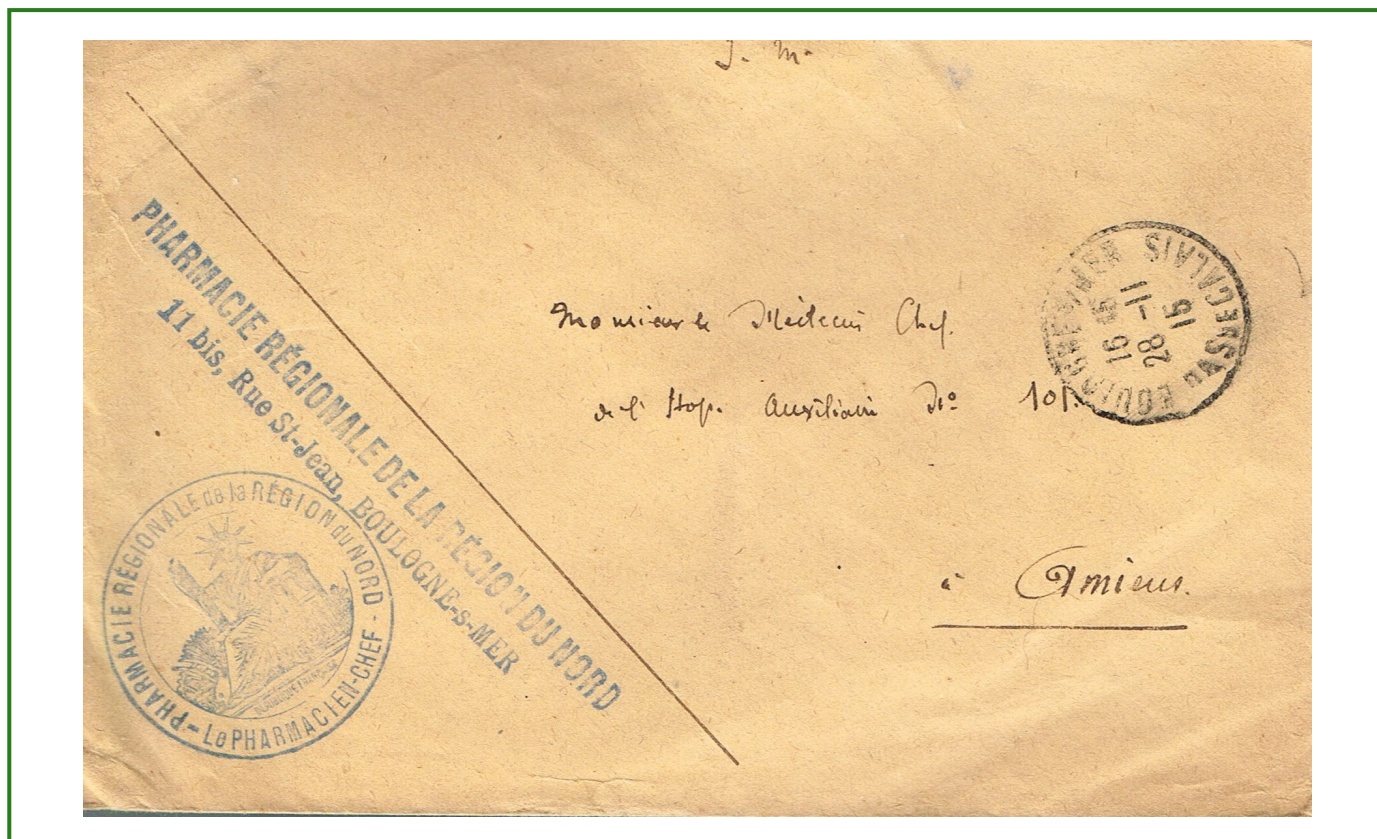 J. M.
PHARMACIE RÉGIONALE DE LA RÉGION DU NORD
11 bis, Rue St-Jean, BOULOGNE-S-MER
PHARMACIE RÉGIONALE de la RÉGION du NORD
- Le PHARMACIEN-CHEF -
Monsieur le Médecin Chef.
de l' Hop. Auxiliaire No
à Amiens.
BOULOGNE S MER
PAS DE CALAIS
28 - 11
15